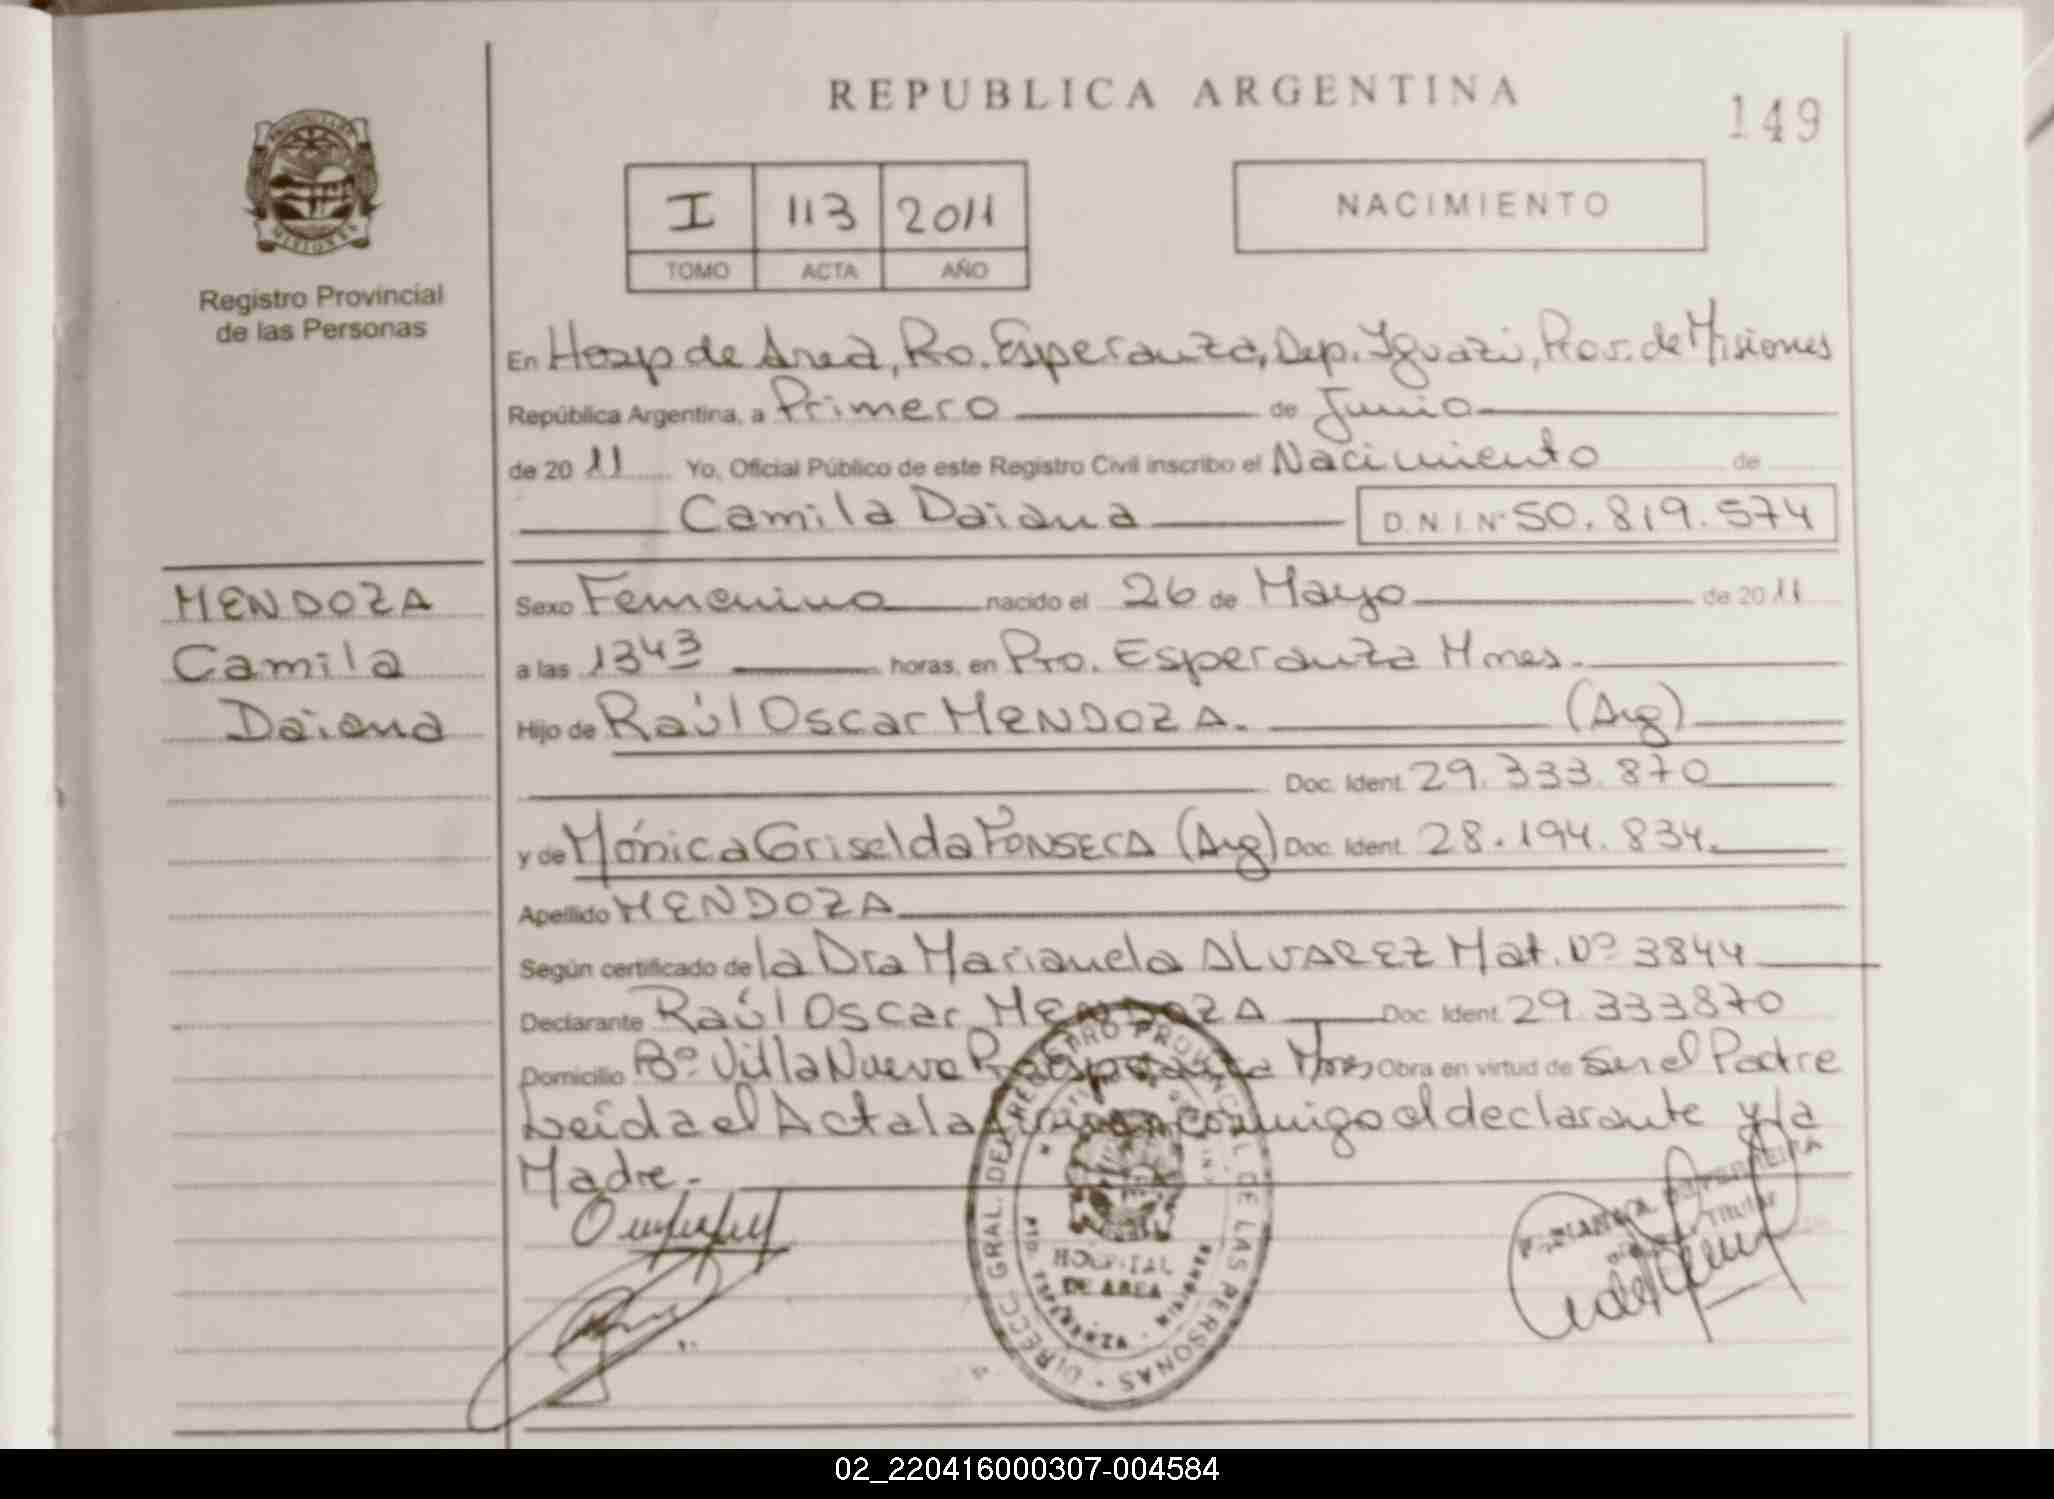 REPUBLICA ARGENTINA
149
I 113 2011
TOMO ACTA AÑO
NACIMIENTO
MISIONES
Registro Provincial
de las Personas
En Hosp de Area, Pto. Esperanza, Dep. Iguazú, Prov. de Misiones
República Argentina, a Primero de Junio
de 20 11 Yo, Oficial Público de este Registro Civil inscribo el Nacimiento de
Camila Daiana D.N.I. Nº 50.819.574
MENDOZA
Camila
Daiana
Sexo Femenino nacido el 26 de Mayo de 20 11
a las 1343 horas, en Pto. Esperanza Mnes.
Hijo de Raúl Oscar MENDOZA. (Arg)
Doc. Ident. 29.333.870
y de Mónica Griselda FONSECA (Arg) Doc. Ident. 28.194.834.
Apellido MENDOZA
Según certificado de la Dra Marianela ALVAREZ Mat. Nº 3844
Declarante Raúl Oscar MENDOZA Doc. Ident. 29.333870
Domicilio Bº Villa Nueva Pto Esperanza Mnes Obra en virtud de ser el Padre
Leída el Acta la firman conmigo el declarante y la
Madre.-
DIRECC. GRAL. DEL REGISTRO PROVINCIAL DE LAS PERSONAS
HOSPITAL
DE AREA
PTO. ESPERANZA - MISIONES
TITULAR
02_220416000307-004584